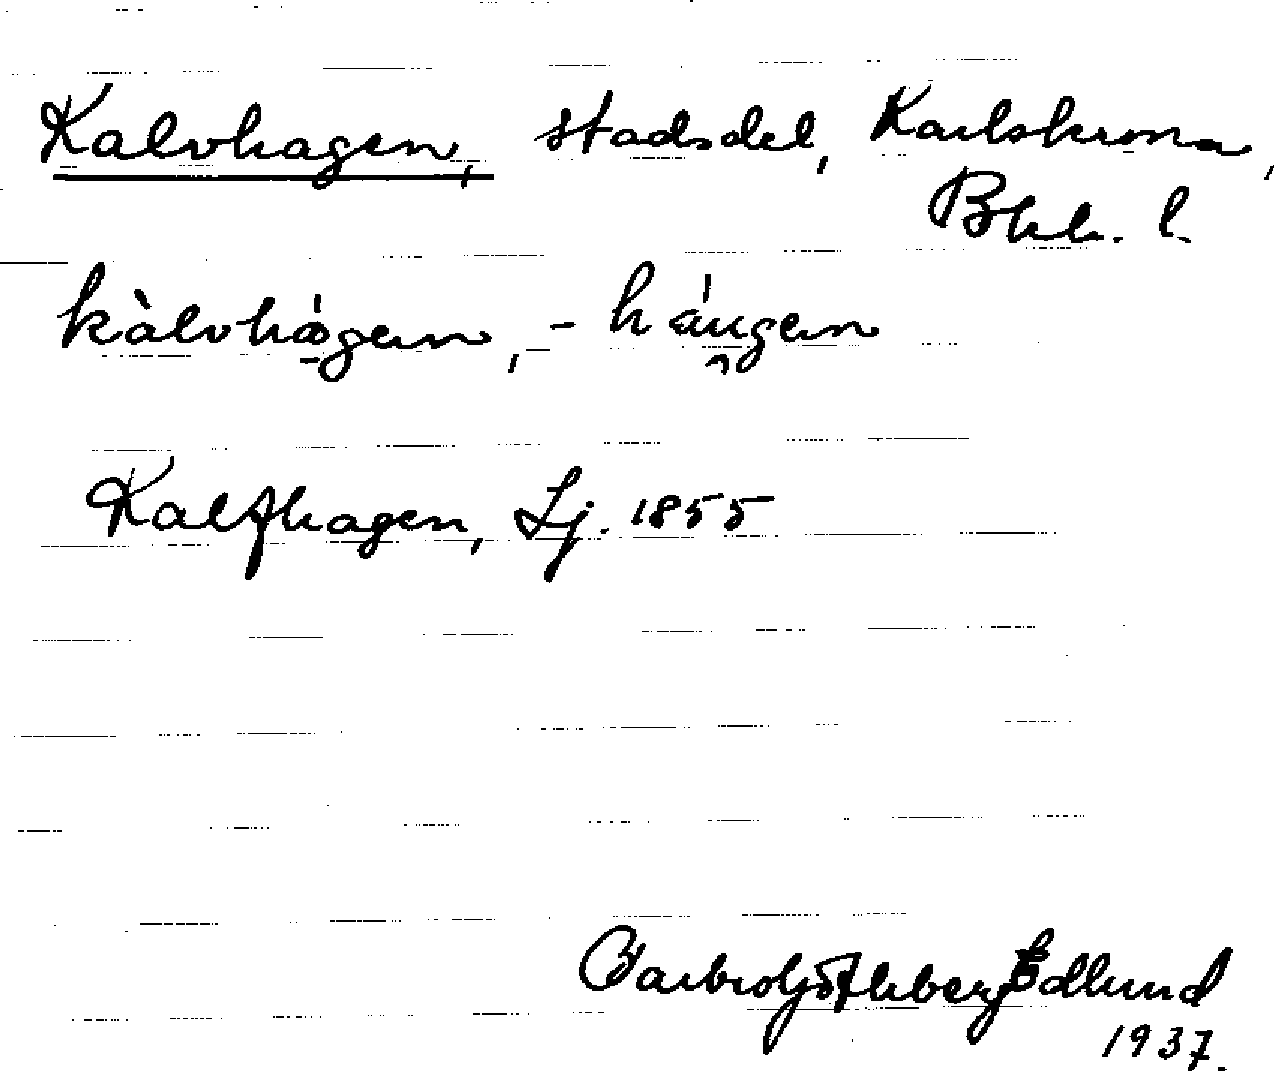 Kalvhagen, stadsdel, Karlskrona,
Blek. l.
kàlvhágen, - háugen
Kalfhagen, Lj. 1855
Edlund
1937.